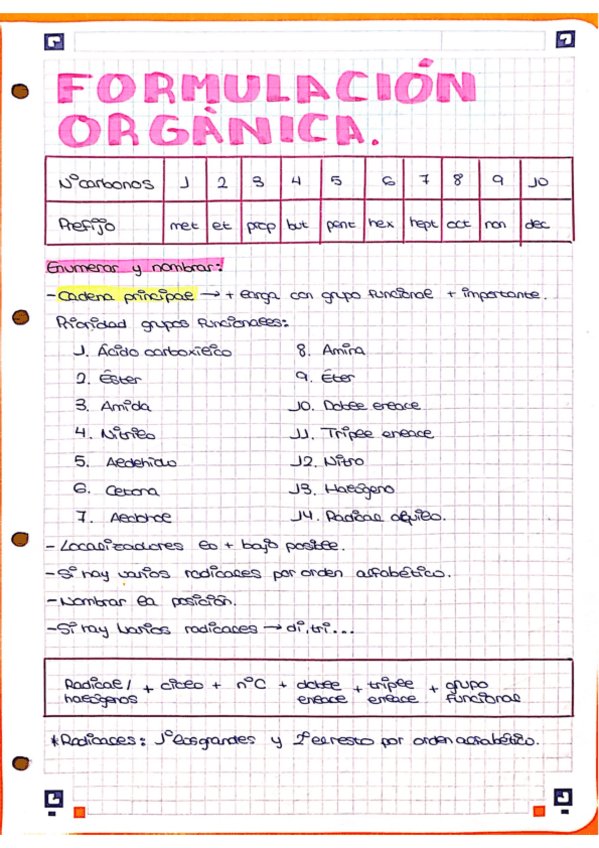 FORMULACIÓN
ORGÀNICA.
Nº carbonos 1 2 3 4 5 6 7 8 9 10
Prefijo met et prop but pent hex hept oct non dec
Enumerar y nombrar:
- Cadena principal → + larga con grupo funcional + importante.
Prioridad grupos funcionales:
1. Ácido carboxílico
2. Éster
3. Amida
4. Nitrilo
5. Aldehído
6. Cetona
7. Alcohol
8. Amina
9. Éter
10. Doble enlace
11. Triple enlace
12. Nitro
13. Halógeno
14. Radical alquilo.
- Localizadores lo + bajo posible.
- Si hay varios radicales por orden alfabético.
- Nombrar la posición.
- Si hay varios radicales → di, tri...
Radical / halógenos + ciclo + nºC + doble enlace + triple enlace + grupo funcional
*Radicales: 1º los grandes y 2º el resto por orden alfabético.